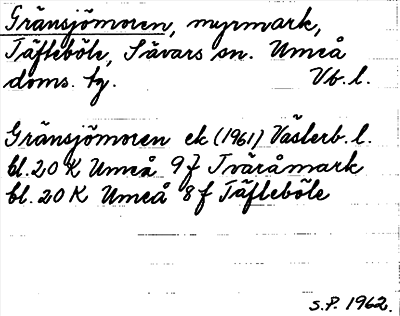 Gränsjömoren, myrmark,
Täfteböle, Sävars sn. Umeå
doms. tg. Vb. l.
Gränsjömoren ek (1961) Västerb. l.
bl. 20 K Umeå 9 f Tväråmark
bl. 20 K Umeå 8 f Täfteböle
S.P. 1962.